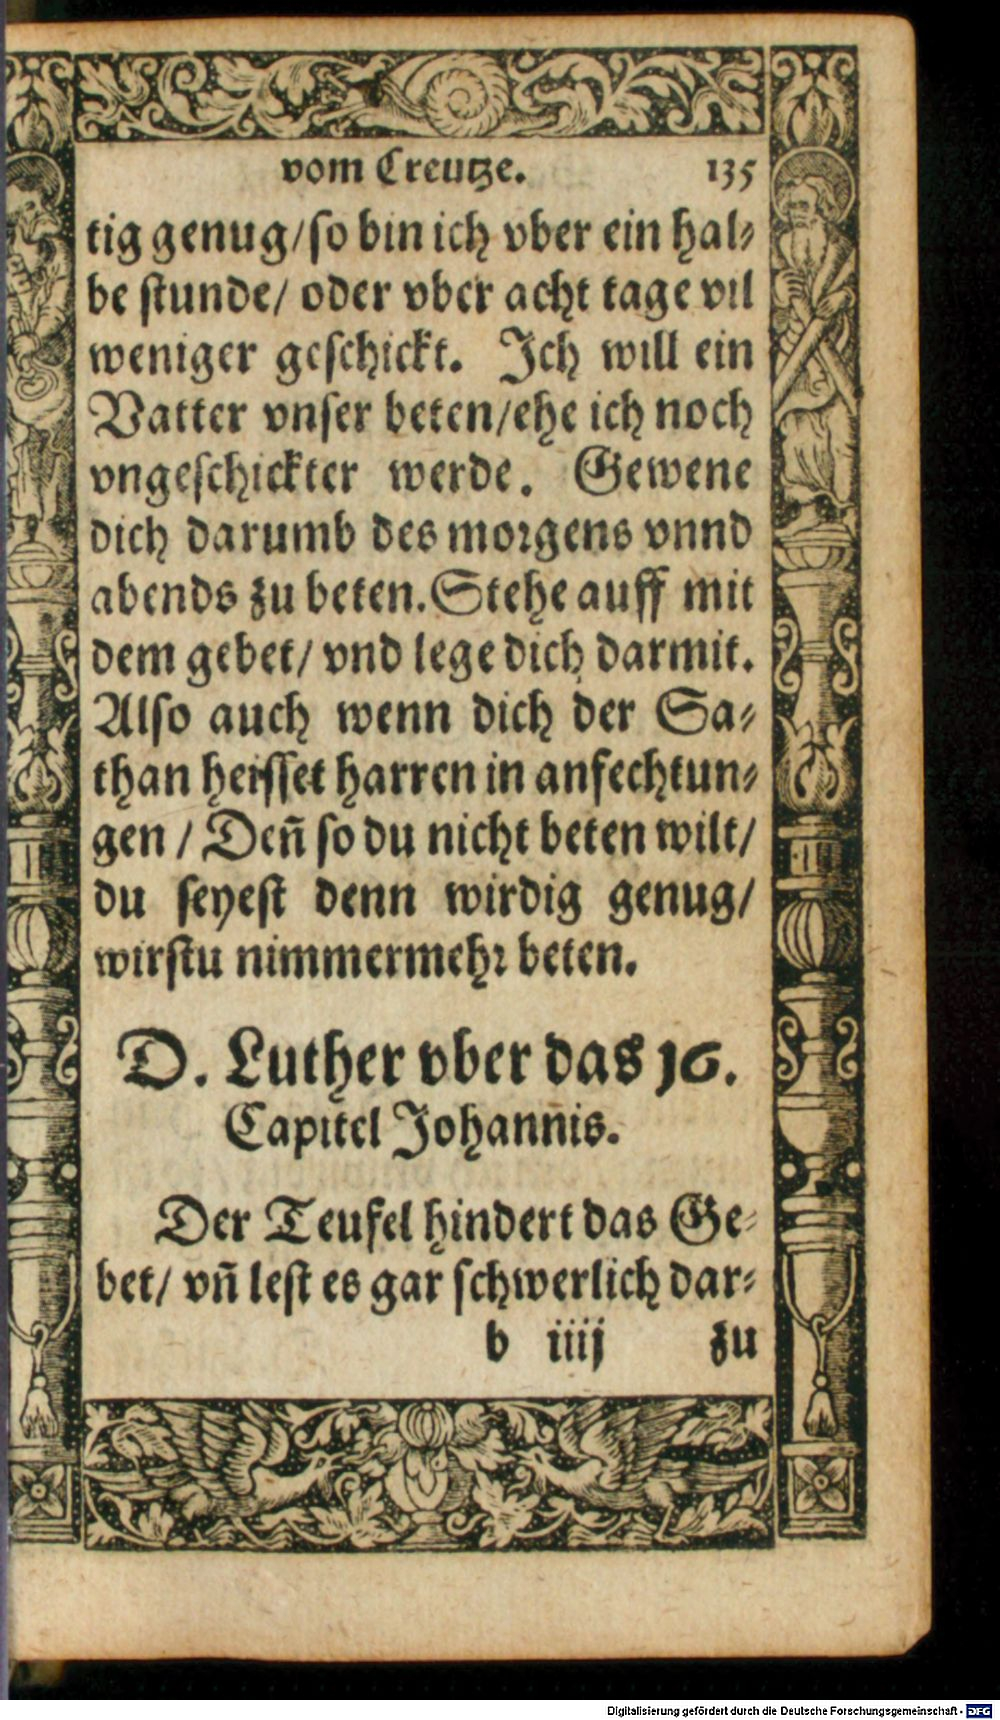 vom Creutze. 135
tig genug/ so bin ich vber ein hal⸗
be stunde/ oder vber acht tage vil
weniger geschickt. Ich will ein
Vatter vnser beten/ ehe ich noch
vngeschickter werde. Gewene
dich darumb des morgens vnnd
abends zu beten. Stehe auff mit
dem gebet/ vnd lege dich darmit.
Also auch wenn dich der Sa⸗
than heisset harren in anfechtun⸗
gen / Deñ so du nicht beten wilt/
du seyest denn wirdig genug/
wirstu nimmermehr beten.
D. Luther vber das 16.
Capitel Johannis.
Der Teufel hindert das Ge⸗
bet/ vñ lest es gar schwerlich dar⸗
b iiij zu
Digitalisierung gefördert durch die Deutsche Forschungsgemeinschaft - DFG